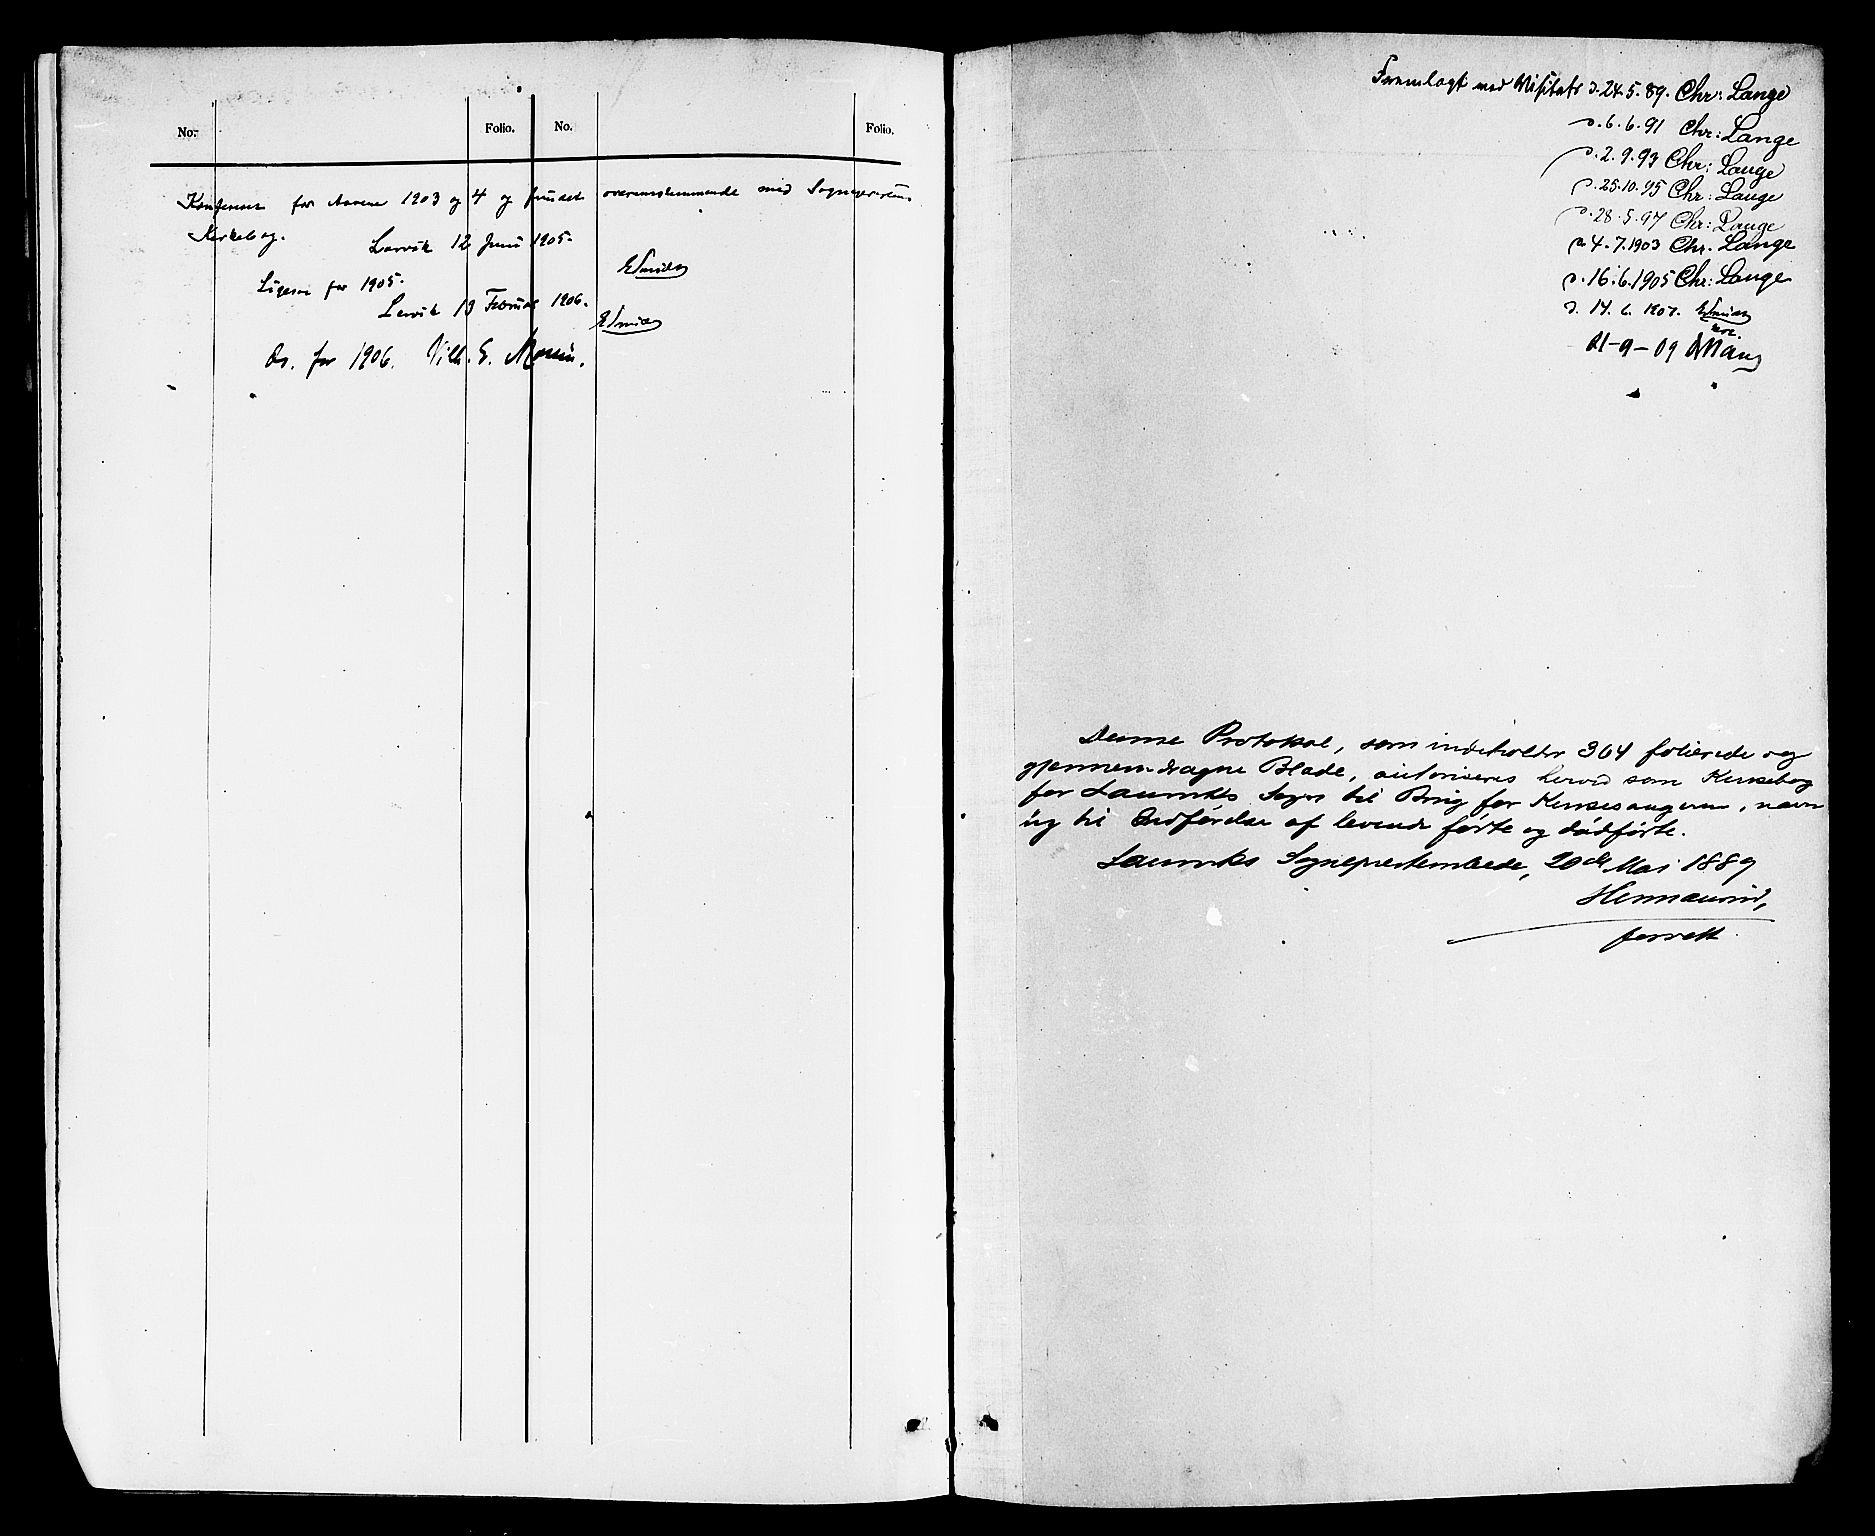 No. Folio. No. Folio.
Konfereret for Aarene 1903 og 4 og fundet overensstemmende med Sogneprestens
Kirkebog.
Larvik 12 Juni 1905.
ESmidt
Ligesaa for 1905.
Larvik 13 Februar 1906.
ESmidt
Do. for 1906. Vilh. E.
Fremlagt ved Visitats d. 24.5.89. Chr: Lange
d. 6.6.91 Chr: Lange
d. 2.9.93 Chr: Lange
d. 25.10.95 Chr: Lange
d. 28.5.97 Chr: Lange
d. 4.7.1903 Chr. Lange
d. 16.6.1905 Chr: Lange
d. 14.6.1907. ESmidt
21-9-09
Denne Protokol, som indeholder 304 folierede og
gjennemdragne Blade, autoriseres herved som Kirkebog
for Laurviks Sogn til Brug for Kirkesangeren, navn-
lig til Indførelse af levende fødte og dødfødte.
Laurviks Sogneprestembede, 20de Mai 1889